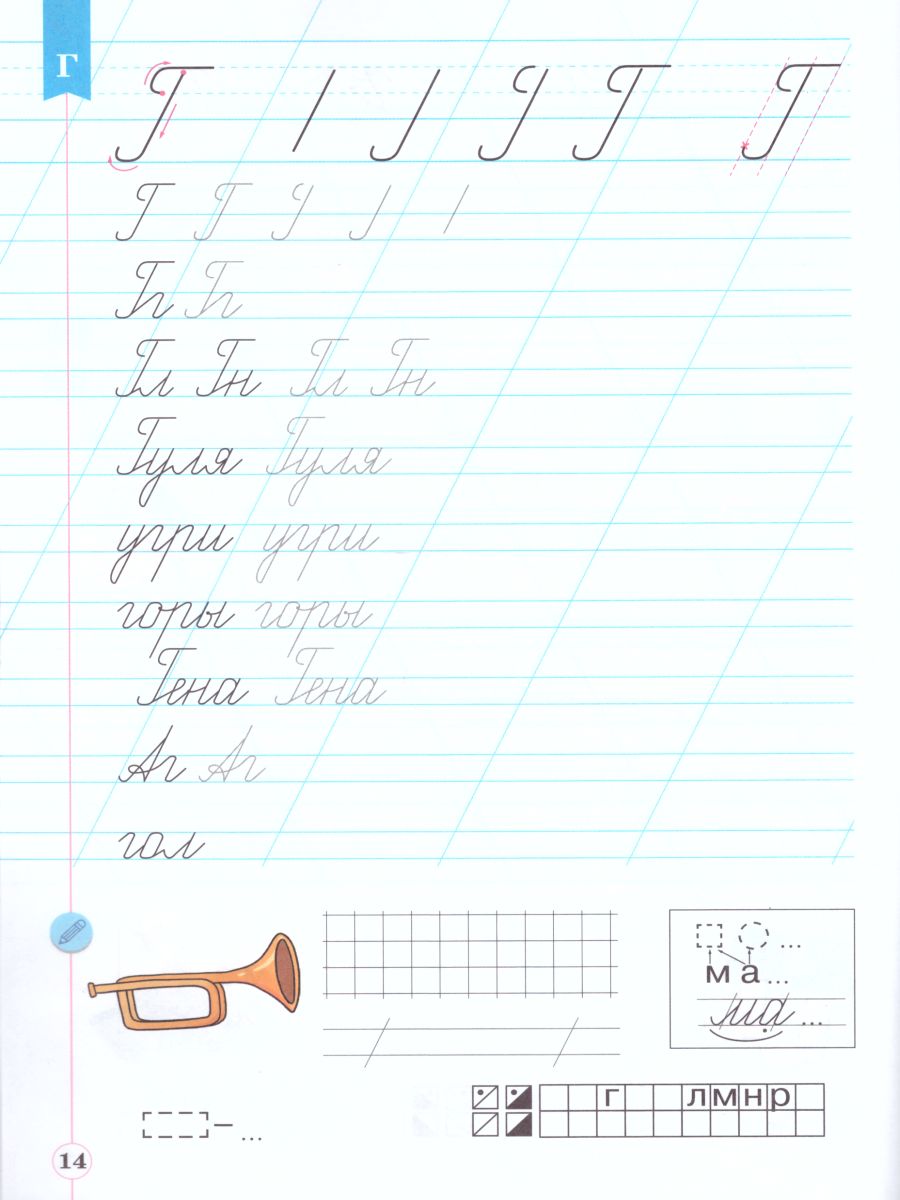 Г
Г Г
Г Г
Г Г Г
Гг Гг
Гл Гн Гл Гн
Гуля Гуля
угри угри
горы горы
Гена Гена
Аг Аг
гол
...
м а ...
ма ...
г л м н р
– ...
14